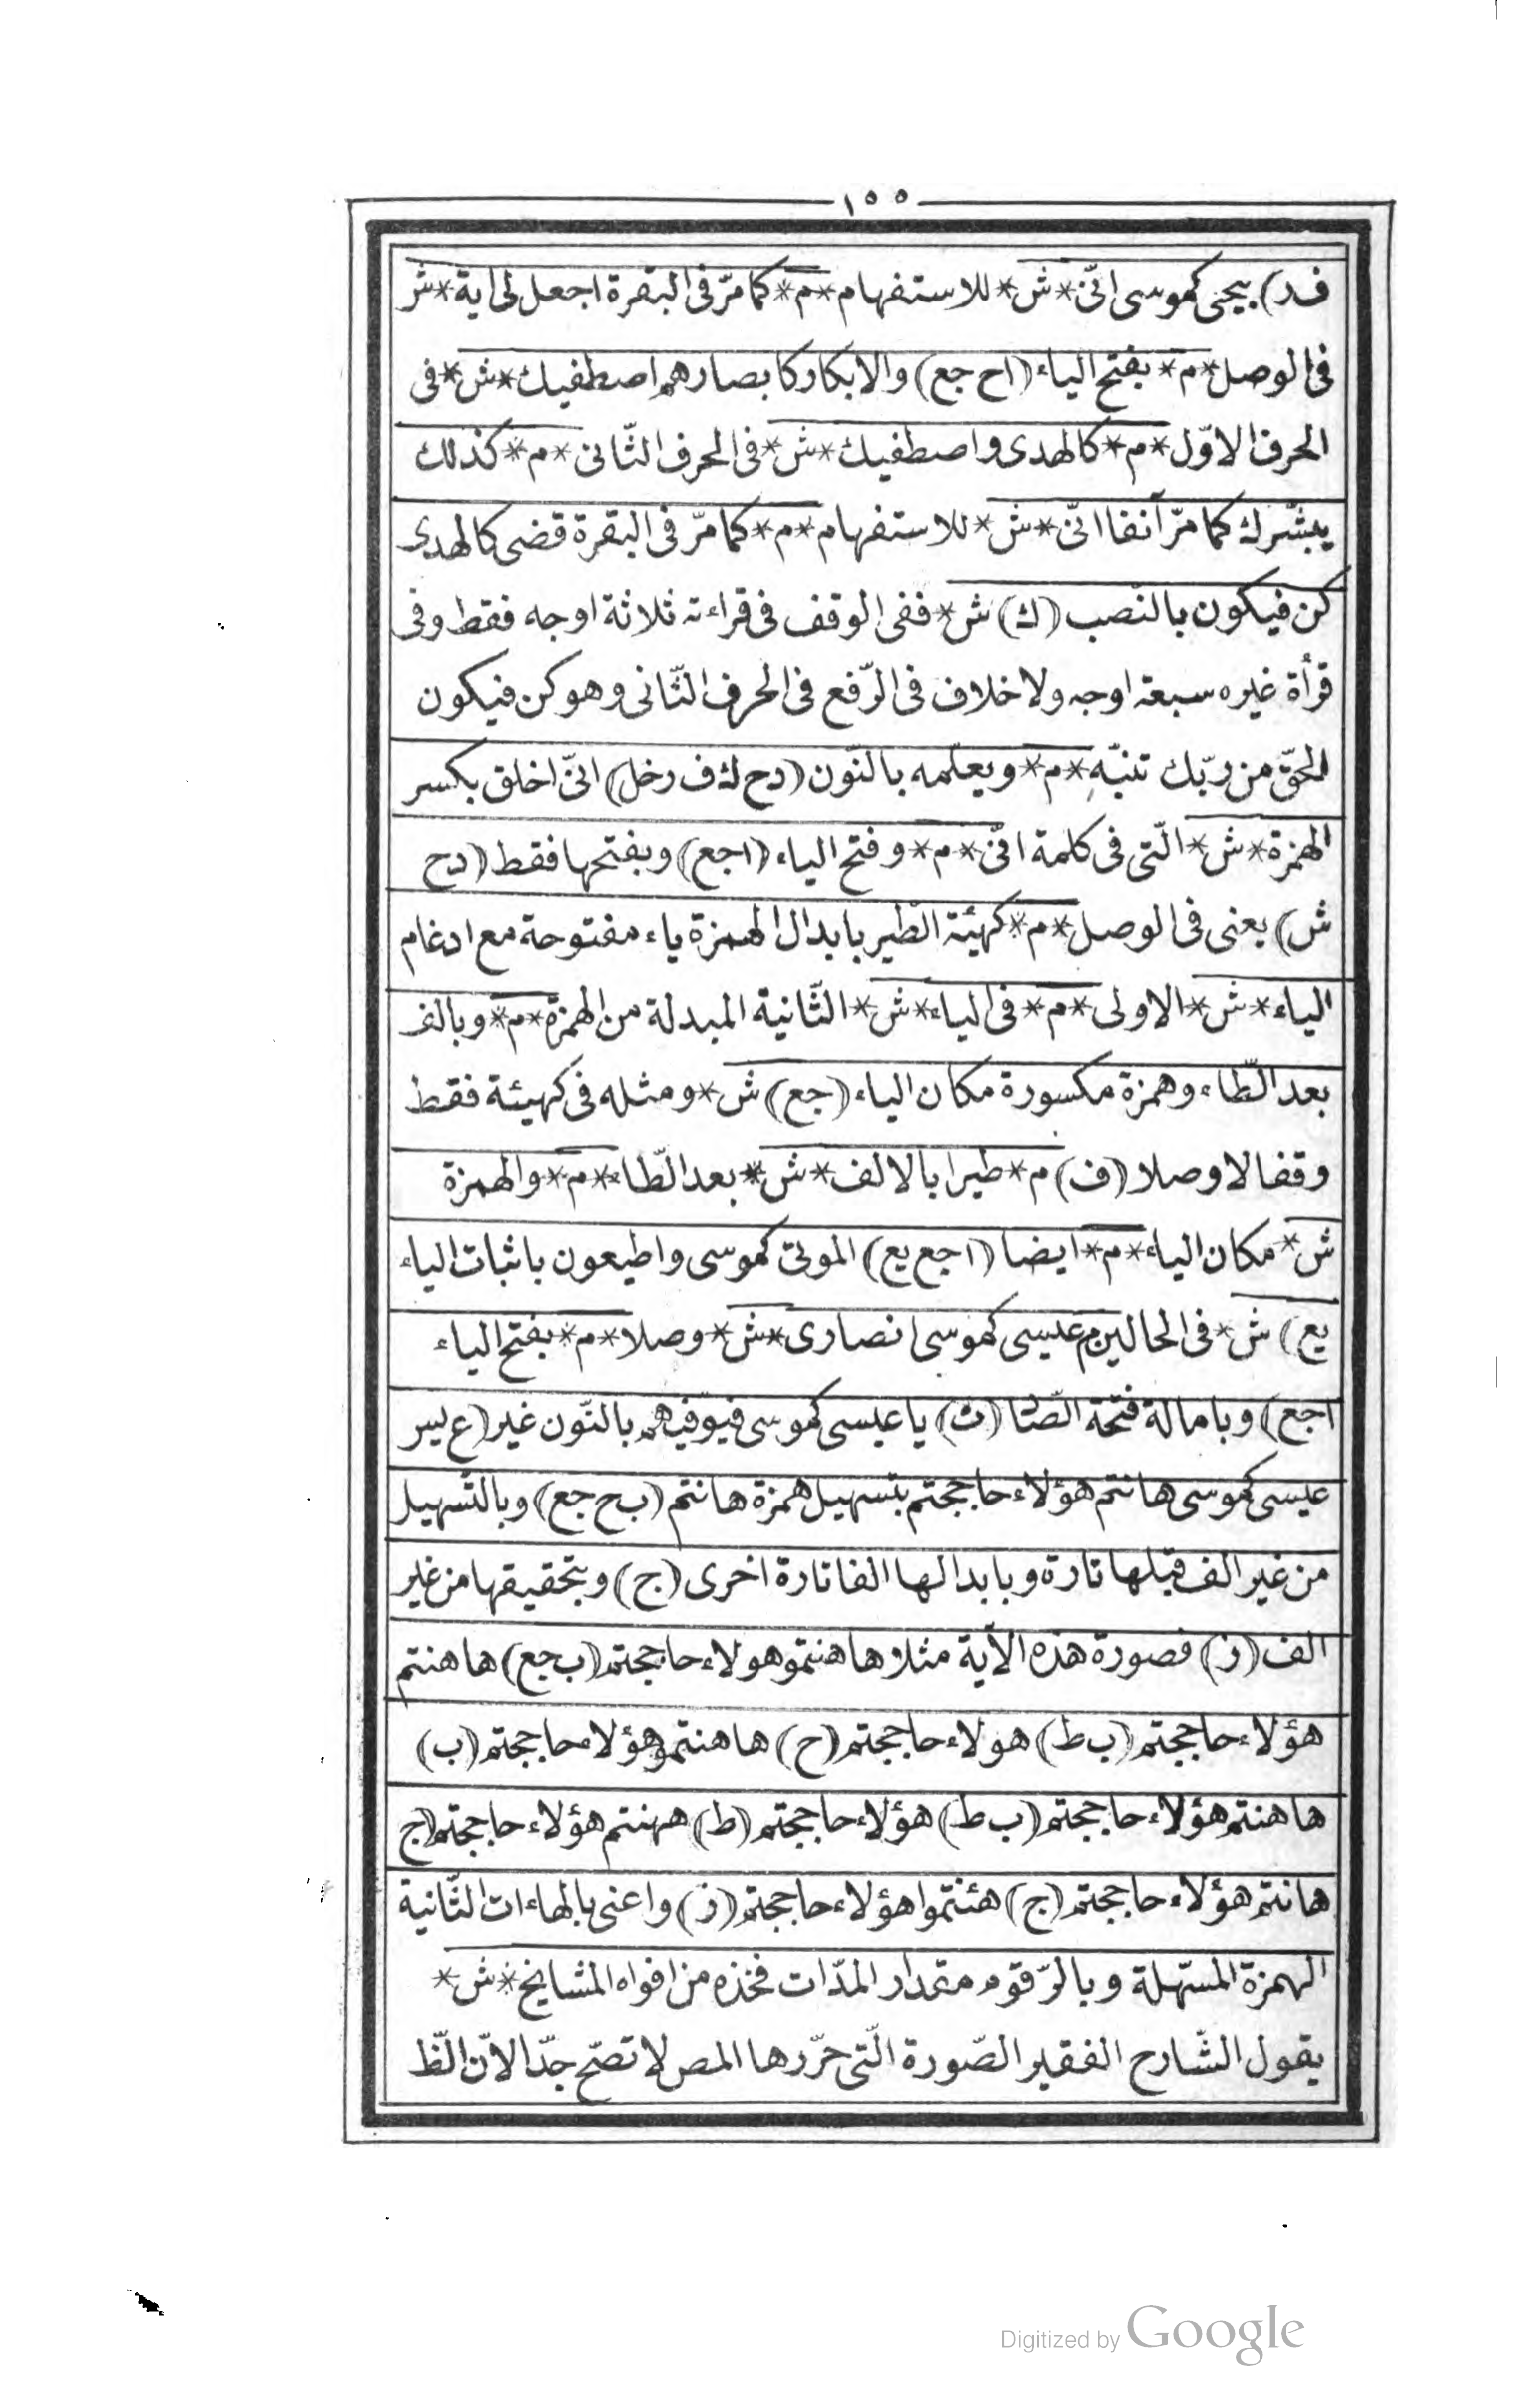 ١٥٥
ف ر) بيحيى كموسى انّى*ش*للاستفهام*م*كما مرّ فى البقرة اجعل لى اية*ش
فى الوصل*م*بفتح الياء (اح جع) والابكار كابصارهم اصطفيك*ش*فى
الحرف الاوّل*م*كالهدى واصطفيك*ش*فى الحرف الثّانى*م*كذلك
يبشّرك كما مرّ آنفا انّى*ش*للاستفهام*م*كما مرّ فى البقرة قضى كالهدى
كن فيكون بالنّصب (ك) ش*ففى الوقف فى قراءته ثلاثة اوجه فقط وفى
قرأة غيره سبعة اوجه ولا خلاف فى الرّفع فى الحرف الثّانى وهو كن فيكون
الحقّ من ربّك تنبّه*م*ويعلّمه بالنّون (دح ك ف رخل) انّى اخلق بكسر
الهمزة*ش*الّتى فى كلمة انّى*م*وفتح الياء (اجع) وبفتحها فقط (دح
ش) يعنى فى الوصل*م*كهيّة الطّير بابدال الهمزة ياء مفتوحة مع ادغام
الياء*ش*الاولى*م*فى الياء*ش*الثّانية المبدلة من الهمزة*م*وبالف
بعد الطّاء وهمزة مكسورة مكان الياء (جع) ش*ومثله فى كهيئة فقط
وقفا لا وصلا (ف) م*طيرا بالالف*ش*بعد الطّاء*م*والهمزة
ش*مكان الياء*م*ايضا (اجع يع) الموتى كموسى واطيعون باثبات الياء
يع) ش*فى الحالين م عيسى كموسى انصارى*ش*وصلا*م*بفتح الياء
اجع) وبامالة فتحة الصّاد (ت) يا عيسى كموسى فيوفّيهم بالنّون غير (ع يسر
عيسى كموسى هانتم هؤلاء حاججتم بتسهيل همزة هانتم (ب ح جع) وبالتّسهيل
من غير الف قبلها تارة وبابدالها الفا تارة اخرى (ج) وبتحقيقها من غير
الف (ز) فصورة هذه الآية مثلا هاهنتمو هولاء حاججتم (ب جع) هاهنتم
هؤلاء حاججتم (ب ط) هولاء حاججتم (ح) هاهنتمو هؤلاء حاججتم (ب)
هاهنتم هؤلاء حاججتم (ب ط) هؤلاء حاججتم (ط) ههنتم هؤلاء حاججتم (ج
هانتم هؤلاء حاججتم (ج) هئنتموا هؤلاء حاججتم (ز) واعنى بالهاءات الثّانية
الهمزة المسّهلة وبالرّقوم مقدار المدّات فخذه من افواه المشايخ*ش*
يقول الشّارح الفقير الصّورة الّتى حرّرها المص لا تصّح جدّا الانّ الظ
Digitized by Google